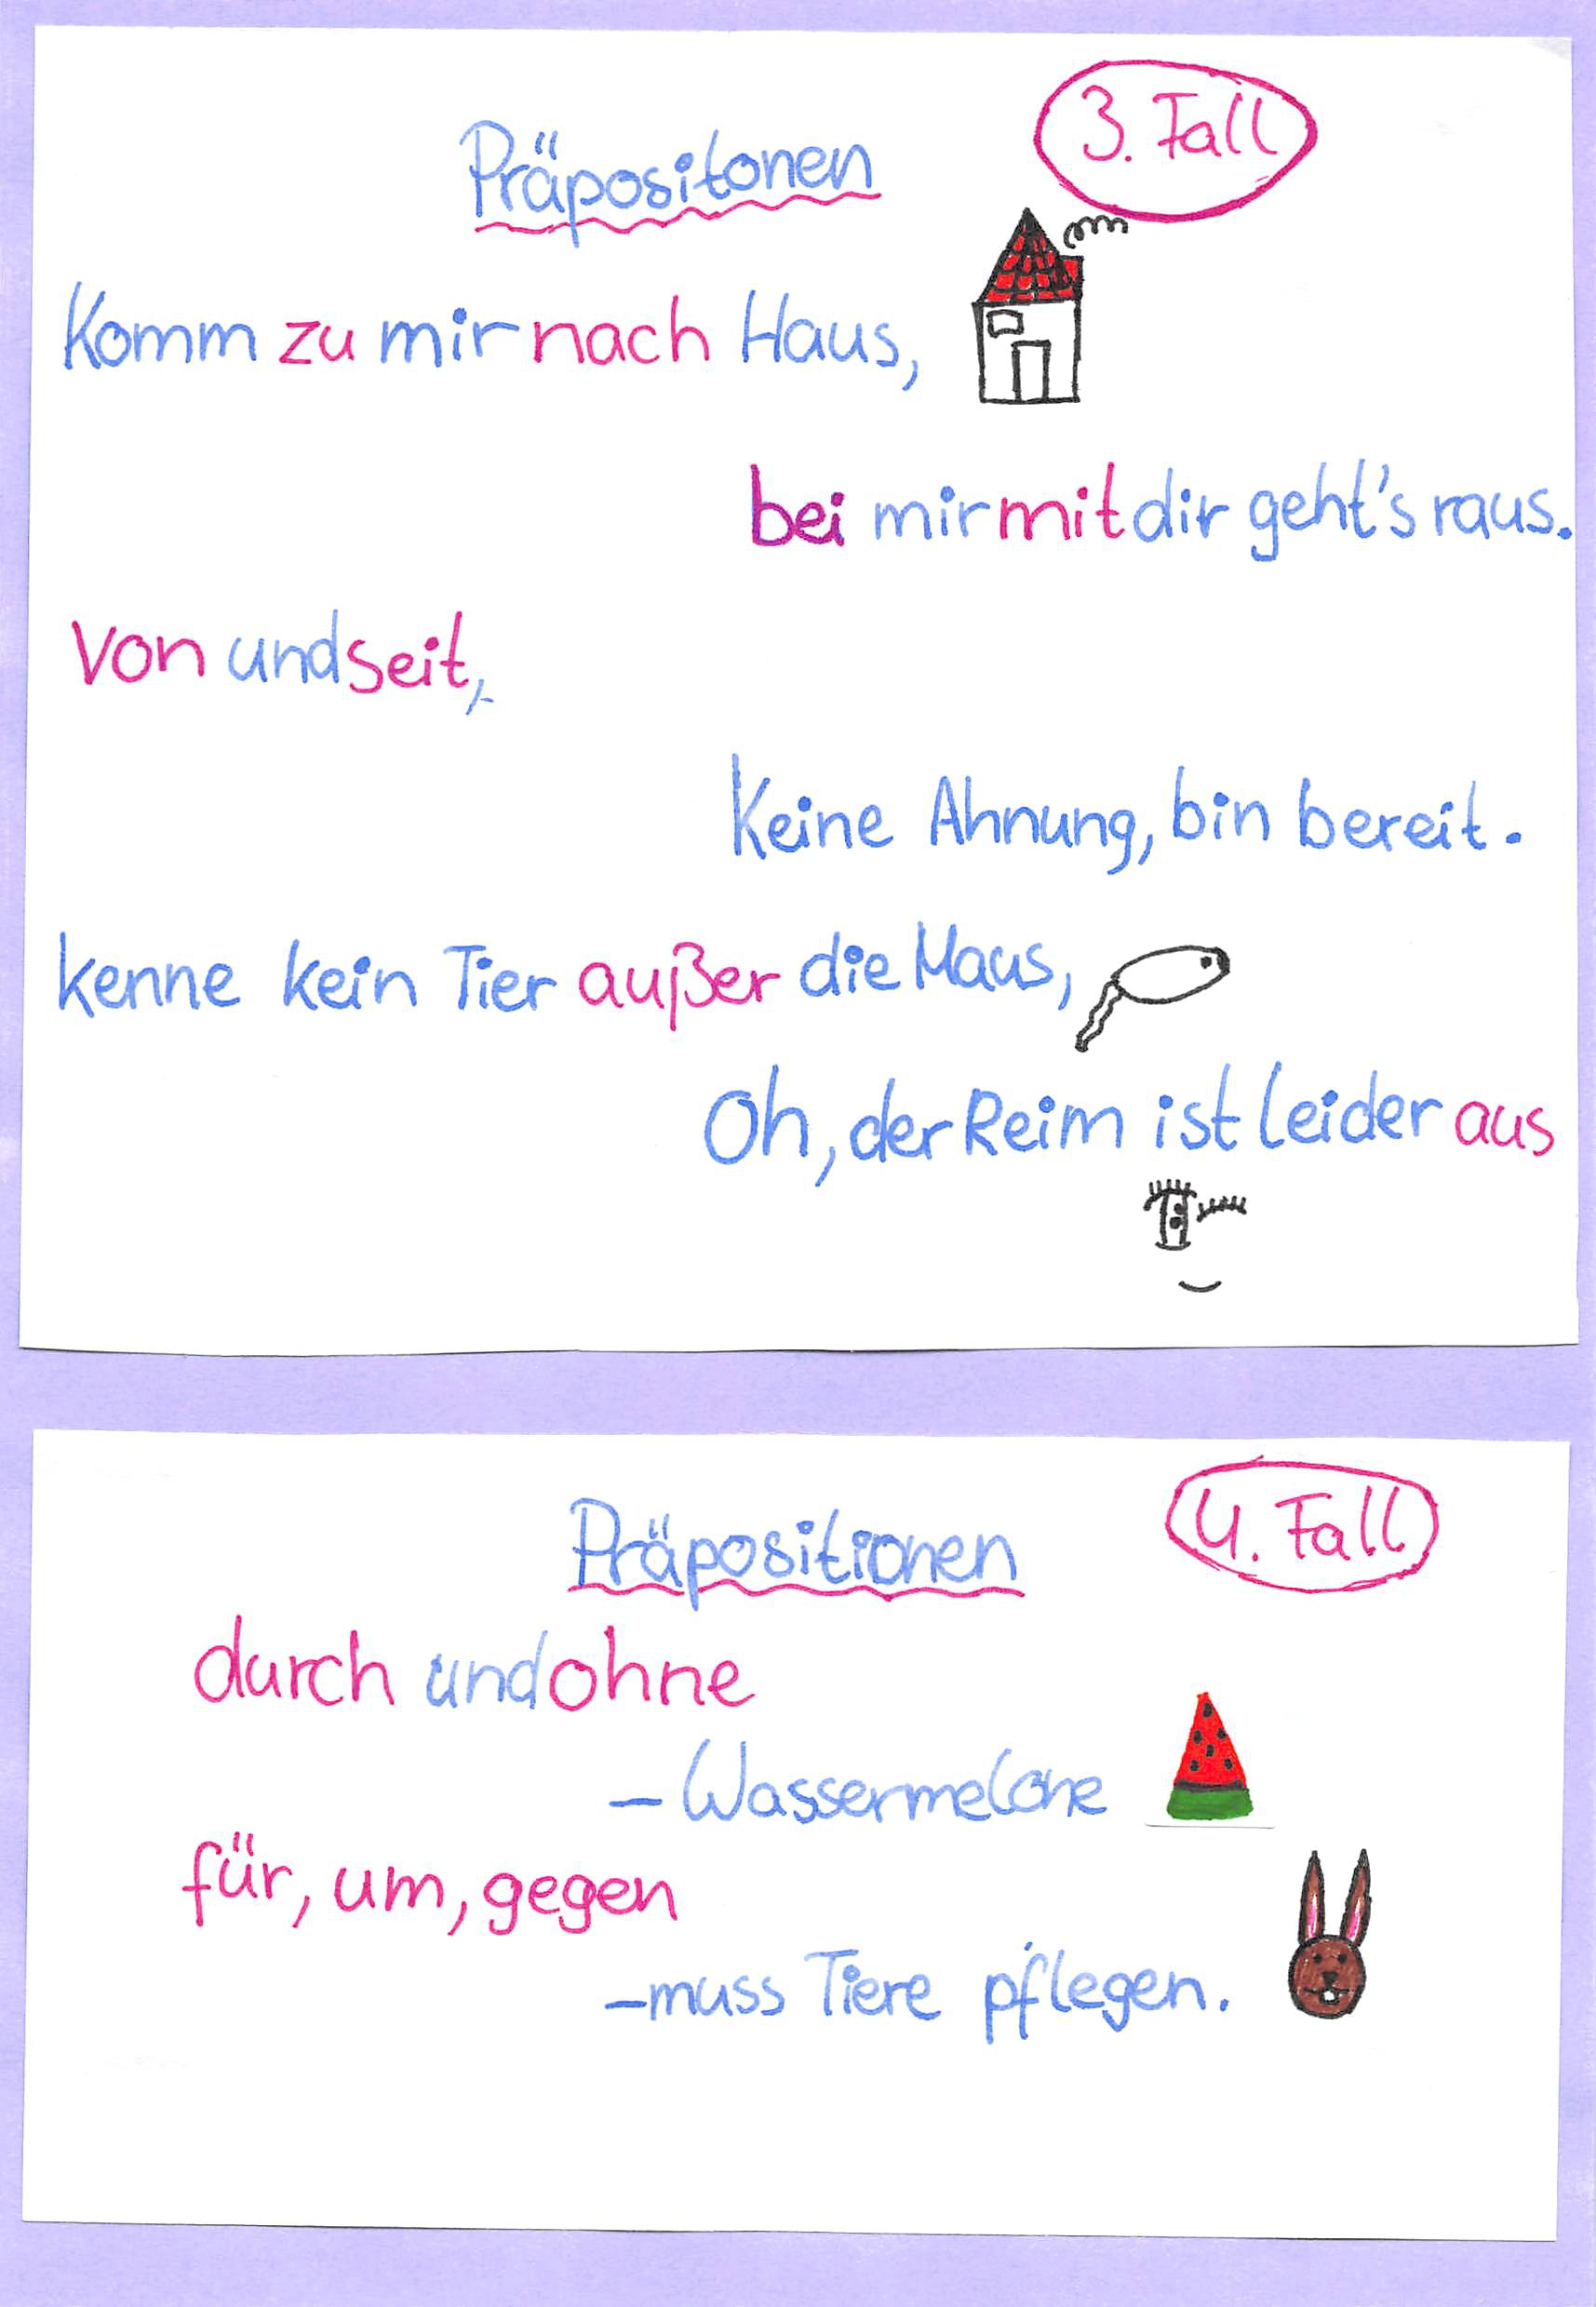 3. Fall
Präpositonen
Komm zu mir nach Haus,
bei mir mit dir geht's raus.
Von und seit,
Keine Ahnung, bin bereit.
kenne kein Tier außer die Maus,
Oh, der Reim ist leider aus
4. Fall
Präpositionen
durch und ohne
– Wassermelone
für, um, gegen
– muss Tiere pflegen.